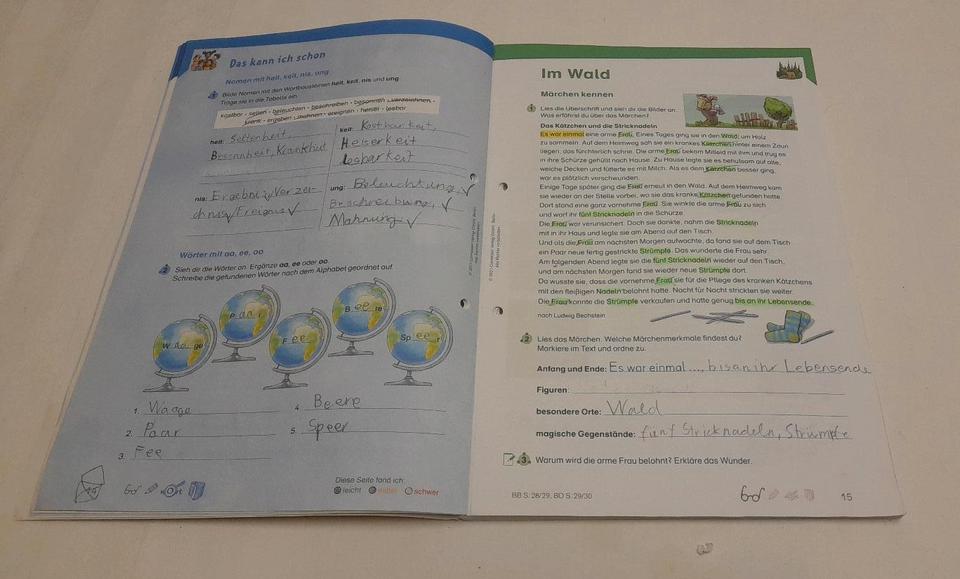 Das kann ich schon
Nomen mit heit, keit, nis, ung
1 Bilde Nomen mit den Wortbausteinen heit, keit, nis und ung.
Trage sie in die Tabelle ein.
kostbar - selten - beleuchten - beschreiben - besonnen - verzeichnen -
krank - ergeben - mahnen - ereignen - heiser - lesbar
heit: Seltenheit,
Besonnheit, Krankheit
keit: Kostbarkeit,
Heiserkeit
lesbarkeit
nis: Ergebniz, Verzei-
chnis, Ereignis
ung: Beleuchtung,
Beschreibung,
Mahnung
Wörter mit aa, ee, oo
2 Sieh dir die Wörter an. Ergänze aa, ee oder oo.
Schreibe die gefundenen Wörter nach dem Alphabet geordnet auf.
W aa ge
P aa r
F ee
B ee re
Sp ee r
1. Waage
2. Paar
3. Fee
4. Beere
5. Speer
Diese Seite fand ich:
leicht mittel schwer
Im Wald
Märchen kennen
1 Lies die Überschrift und sieh dir die Bilder an.
Was erfährst du über das Märchen?
Das Kätzchen und die Stricknadeln
Es war einmal eine arme Frau. Eines Tages ging sie in den Wald, um Holz
zu sammeln. Auf dem Heimweg sah sie ein krankes Kätzchen hinter einem Zaun
liegen, das fürchterlich schrie. Die arme Frau bekam Mitleid mit ihm und trug es
in ihre Schürze gehüllt nach Hause. Zu Hause legte sie es behutsam auf alte,
weiche Decken und fütterte es mit Milch. Als es dem Kätzchen besser ging,
war es plötzlich verschwunden.
Einige Tage später ging die Frau erneut in den Wald. Auf dem Heimweg kam
sie wieder an der Stelle vorbei, wo sie das kranke Kätzchen gefunden hatte.
Dort stand eine ganz vornehme Frau. Sie winkte die arme Frau zu sich
und warf ihr fünf Stricknadeln in die Schürze.
Die Frau war verunsichert. Doch sie dankte, nahm die Stricknadeln
mit in ihr Haus und legte sie am Abend auf den Tisch.
Und als die Frau am nächsten Morgen aufwachte, da fand sie auf dem Tisch
ein Paar neue fertig gestrickte Strümpfe. Das wunderte die Frau sehr.
Am folgenden Abend legte sie die fünf Stricknadeln wieder auf den Tisch,
und am nächsten Morgen fand sie wieder neue Strümpfe dort.
Da wusste sie, dass die vornehme Frau sie für die Pflege des kranken Kätzchens
mit den fleißigen Nadeln belohnt hatte. Nacht für Nacht strickten sie weiter.
Die Frau konnte die Strümpfe verkaufen und hatte genug bis an ihr Lebensende.
nach Ludwig Bechstein
2 Lies das Märchen. Welche Märchenmerkmale findest du?
Markiere im Text und ordne zu.
Anfang und Ende: Es war einmal ..., bis an ihr Lebensende
Figuren:
besondere Orte: Wald
magische Gegenstände: fünf Stricknadeln, Strümpfe
3 Warum wird die arme Frau belohnt? Erkläre das Wunder.
BB S. 28/29, BO S. 29/30
15